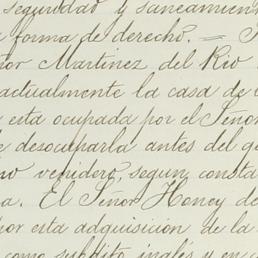 seguridad y saneamien
forma de derecho. =
or Martinez del Rio
actualmente la casa de
esta ocupada por el Señor
desocuparla antes del
o venidero, segun consta
a. El Señor Honey de
por esta adquisicion de la
como subdito inglés y en